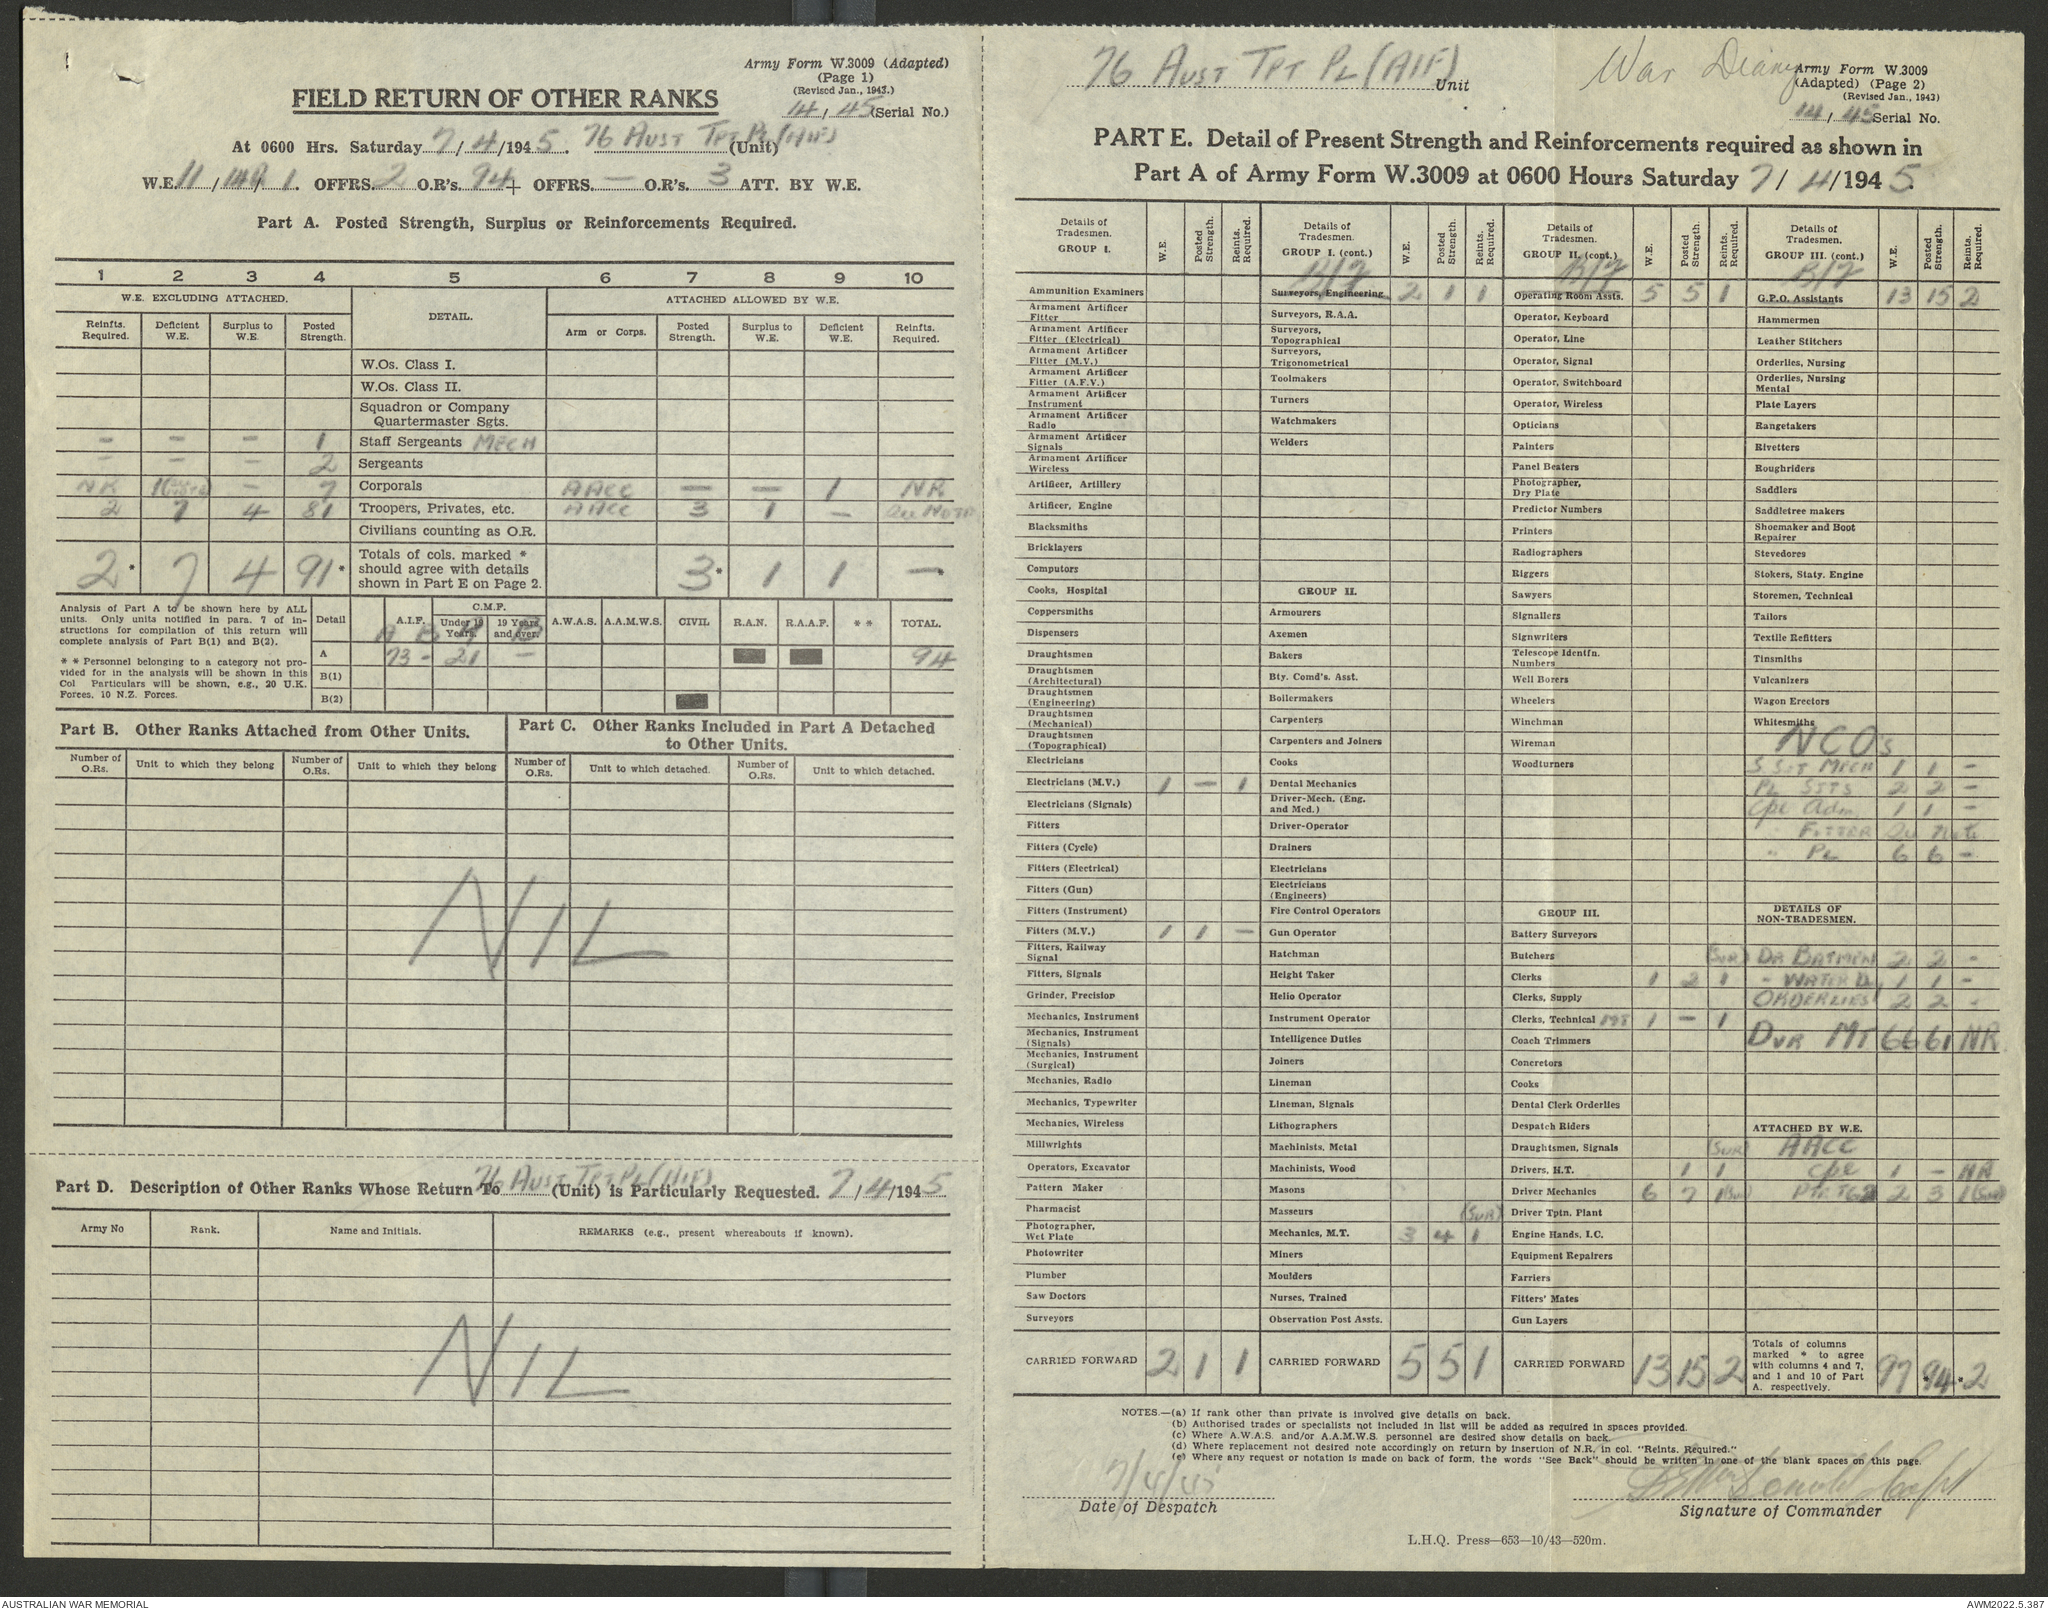 Army Form W.3009 (Adapted)
(Page 1)
(Revised Jan., 1943.)
14/45 (Serial No.)
FIELD RETURN OF OTHER RANKS
At 0600 Hrs. Saturday 7/4/1945. 76 AUST TPT PL (AIF) (Unit)
W.E. 11/149/1. OFFRS. 2 O.R's. 94 + OFFRS. — O.R's. 3 ATT. BY W.E.
Part A. Posted Strength, Surplus or Reinforcements Required.
1 2 3 4 5 6 7 8 9 10
W.E. EXCLUDING ATTACHED. DETAIL. ATTACHED ALLOWED BY W.E.
Reinfts. Required. Deficient W.E. Surplus to W.E. Posted Strength. Arm or Corps. Posted Strength. Surplus to W.E. Deficient W.E. Reinfts. Required.
W.Os. Class I.
W.Os. Class II.
Squadron or Company Quartermaster Sgts.
— — — 1 Staff Sergeants MECH
— — — 2 Sergeants
NR 1 — 7 Corporals AACC — — 1 NR
2 7 4 81 Troopers, Privates, etc. AACC 3 1 —
Civilians counting as O.R.
2* 7 4 91* Totals of cols. marked * should agree with details shown in Part E on Page 2. 3* 1 1 —*
Analysis of Part A to be shown here by ALL units. Only units notified in para. 7 of instructions for compilation of this return will complete analysis of Part B(1) and B(2).
* * Personnel belonging to a category not provided for in the analysis will be shown in this Col Particulars will be shown, e.g., 20 U.K. Forces, 10 N.Z. Forces.
Detail A.I.F. C.M.F. Under 19 Years. 19 Years and over. A.W.A.S. A.A.M.W.S. CIVIL R.A.N. R.A.A.F. * * TOTAL.
A B A B
A 73 - 21 — 94
B(1)
B(2)
Part B. Other Ranks Attached from Other Units.
Part C. Other Ranks Included in Part A Detached to Other Units.
Number of O.Rs. Unit to which they belong Number of O.Rs. Unit to which they belong Number of O.Rs. Unit to which detached. Number of O.Rs. Unit to which detached.
NIL
Part D. Description of Other Ranks Whose Return To 76 AUST TPT PL (AIF) (Unit) is Particularly Requested. 7/4/1945
Army No Rank. Name and Initials. REMARKS (e.g., present whereabouts if known).
NIL
76 AUST TPT PL (AIF) Unit
War Diary
Army Form W.3009
(Adapted) (Page 2)
(Revised Jan., 1943)
14/45 Serial No.
PART E. Detail of Present Strength and Reinforcements required as shown in
Part A of Army Form W.3009 at 0600 Hours Saturday 7/4/1945.
Details of Tradesmen. GROUP I. W.E. Posted Strength. Reints. Required.
Ammunition Examiners
Armament Artificer Fitter
Armament Artificer Fitter (Electrical)
Armament Artificer Fitter (M.V.)
Armament Artificer Fitter (A.F.V.)
Armament Artificer Instrument
Armament Artificer Radio
Armament Artificer Signals
Armament Artificer Wireless
Artificer, Artillery
Artificer, Engine
Blacksmiths
Bricklayers
Computors
Cooks, Hospital
Coppersmiths
Dispensers
Draughtsmen
Draughtsmen (Architectural)
Draughtsmen (Engineering)
Draughtsmen (Mechanical)
Draughtsmen (Topographical)
Electricians
Electricians (M.V.) 1 — 1
Electricians (Signals)
Fitters
Fitters (Cycle)
Fitters (Electrical)
Fitters (Gun)
Fitters (Instrument)
Fitters (M.V.) 1 1 —
Fitters, Railway Signal
Fitters, Signals
Grinder, Precision
Mechanics, Instrument
Mechanics, Instrument (Signals)
Mechanics, Instrument (Surgical)
Mechanics, Radio
Mechanics, Typewriter
Mechanics, Wireless
Millwrights
Operators, Excavator
Pattern Maker
Pharmacist
Photographer, Wet Plate
Photowriter
Plumber
Saw Doctors
Surveyors
CARRIED FORWARD 2 1 1
Details of Tradesmen. GROUP I. (cont.) W.E. Posted Strength. Reints. Required.
B/F
Surveyors, Engineering 2 1 1
Surveyors, R.A.A.
Surveyors, Topographical
Surveyors, Trigonometrical
Toolmakers
Turners
Watchmakers
Welders
GROUP II.
Armourers
Axemen
Bakers
Bty. Comd's. Asst.
Boilermakers
Carpenters
Carpenters and Joiners
Cooks
Dental Mechanics
Driver-Mech. (Eng. and Med.)
Driver-Operator
Drainers
Electricians
Electricians (Engineers)
Fire Control Operators
Gun Operator
Hatchman
Height Taker
Helio Operator
Instrument Operator
Intelligence Duties
Joiners
Lineman
Lineman, Signals
Lithographers
Machinists, Metal
Machinists, Wood
Masons
Masseurs
Mechanics, M.T. 3 4 1 (SUR)
Miners
Moulders
Nurses, Trained
Observation Post Assts.
CARRIED FORWARD 5 5 1
Details of Tradesmen. GROUP II. (cont.) W.E. Posted Strength. Reints. Required.
B/F
Operating Room Assts. 5 5 1
Operator, Keyboard
Operator, Line
Operator, Signal
Operator, Switchboard
Operator, Wireless
Opticians
Painters
Panel Beaters
Photographer, Dry Plate
Predictor Numbers
Printers
Radiographers
Riggers
Sawyers
Signallers
Signwriters
Telescope Identfn. Numbers
Well Borers
Wheelers
Winchman
Wireman
Woodturners
GROUP III.
Battery Surveyors
Butchers
Clerks 1 2 1 (SUR)
Clerks, Supply
Clerks, Technical MT 1 — 1
Coach Trimmers
Concretors
Cooks
Dental Clerk Orderlies
Despatch Riders
Draughtsmen, Signals
Drivers, H.T. 1 1 (SUR)
Driver Mechanics 6 7 1 (SUR)
Driver Tptn. Plant
Engine Hands, I.C.
Equipment Repairers
Farriers
Fitters' Mates
Gun Layers
CARRIED FORWARD 13 15 2
Details of Tradesmen. GROUP III. (cont.) W.E. Posted Strength. Reints. Required.
B/F
G.P.O. Assistants 13 15 2
Hammermen
Leather Stitchers
Orderlies, Nursing
Orderlies, Nursing Mental
Plate Layers
Rangetakers
Rivetters
Roughriders
Saddlers
Saddletree makers
Shoemaker and Boot Repairer
Stevedores
Stokers, Staty. Engine
Storemen, Technical
Tailors
Textile Refitters
Tinsmiths
Vulcanizers
Wagon Erectors
Whitesmiths
NCO's
S Sgt MECH 1 1 —
PL SGTS 2 2 —
Cpl Adm. 1 1 —
" FITTER See Note
" PL 6 6 —
DETAILS OF NON-TRADESMEN.
DR BATMEN 2 2 —
- WATER D. 1 1 —
ORDERLIES 2 2 -
DVR MT 66 61 NR
ATTACHED BY W.E.
AACC
Cpl 1 — NR
Pte TG2 2 3 1 (SUR)
Totals of columns marked * to agree with columns 4 and 7, and 1 and 10 of Part A. respectively. 97 *94 *2
NOTES.—(a) If rank other than private is involved give details on back.
(b) Authorised trades or specialists not included in list will be added as required in spaces provided.
(c) Where A.W.A.S. and/or A.A.M.W.S. personnel are desired show details on back.
(d) Where replacement not desired note accordingly on return by insertion of N.R. in col. "Reints. Required."
(e) Where any request or notation is made on back of form, the words "See Back" should be written in one of the blank spaces on this page.
7/4/45
Date of Despatch
Signature of Commander
L.H.Q. Press—653—10/43—520m.
AUSTRALIAN WAR MEMORIAL
AWM2022.5.387